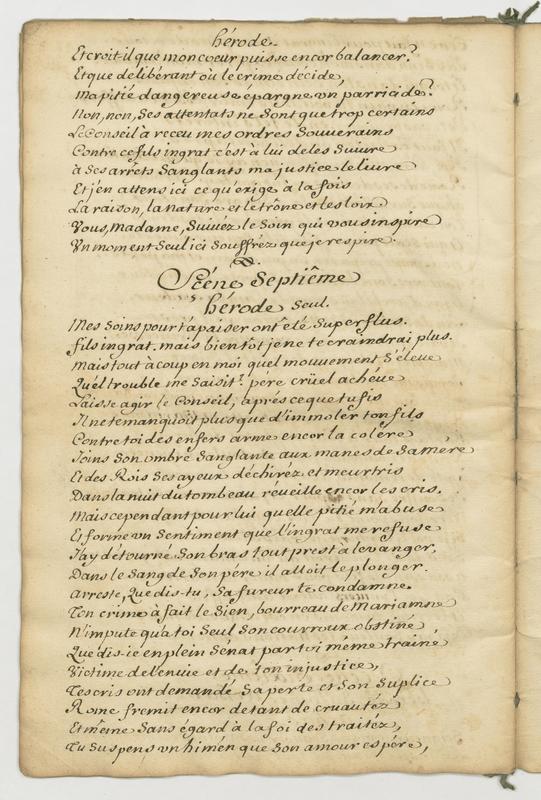 hérode
Et croit il que mon coeur puisse encor balancer?
Et que delibérant où le crime décide,
Ma pitié dangereuse épargne un parricide?
Non, non, Ses attentats ne sont que trop certains
Le Conseil à receu mes ordres Souverains
Contre ce fils ingrat c'est à lui de les Suivre
à Ses arrêts Sanglants ma justice le livre
Et j'en attens ici ce qu'exige à la fois
La raison, la nature et le trône et les loix
Vous, Madame, Suivez le Soin qui vous inspire
Un moment Seul ici Souffrez que je respire.
Scéne Septiême
hérode Seul.
Mes Soins pour t'apaiser ont été Superflus.
fils ingrat. mais bientôt je ne te craindrai plus.
Mais tout à coup en moi quel mouvement S'éleve
Quel trouble me Saisit? pére crüel achéve
Laisse agir le Conseil, aprés ce que tu fis
Il ne te manquoit plus que d'immoler ton fils
Contre toi des enfers arme encor la colére
Joins Son ombre Sanglante aux manes de Sa mére
Et des Rois Ses ayeux déchirez et meurtris
Dans la nuit du tombeau réveille encor les cris.
Mais cependant pour lui quelle pitié m'abuse
Et forme un Sentiment que l'ingrat me refuse
J'ay détourné Son bras tout prest à le vanger,
Dans le Sang de Son pére il alloit le plonger.
Arreste, Que dis-tu, Sa fureur te condamne.
Ton crime à fait le Sien, bourreau de Mariamne
N'impute qu'à toi Seul Son courroux obstiné
Que dis-ie en plein Sénat par toi même trainé
Victime de l'envie et de ton injustice,
Tes cris ont demandé Sa perte et Son Suplice
Rome fremit encor de tant de cruautéz
Et même Sans égard à la foi des traitéz,
Tu Suspens un himén que Son amour espére,